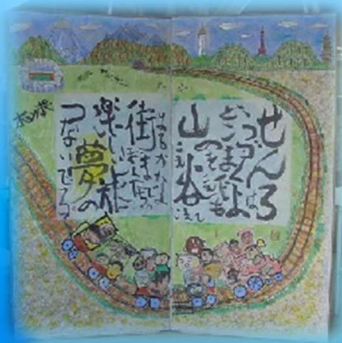 せんろは
つづくよ
どこまでも
のをこえ
山こえ谷こえて
はるかな
街までぼくたちの
楽しい旅の
夢
つないでる